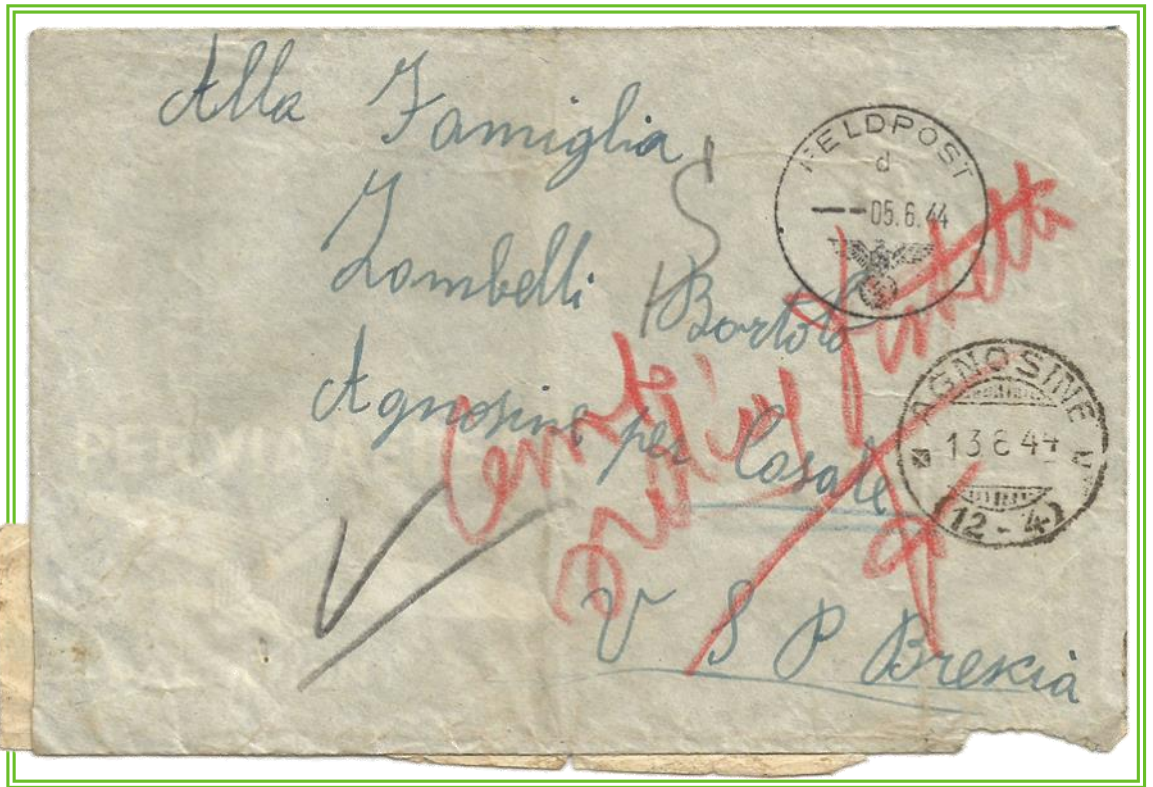 Alla Famiglia
Zambelli Bortolo
Agnosine per Casale
V S P Brescia
FELDPOST
d
--05.6.44
AGNOSINE
13 6 44
(12-4)